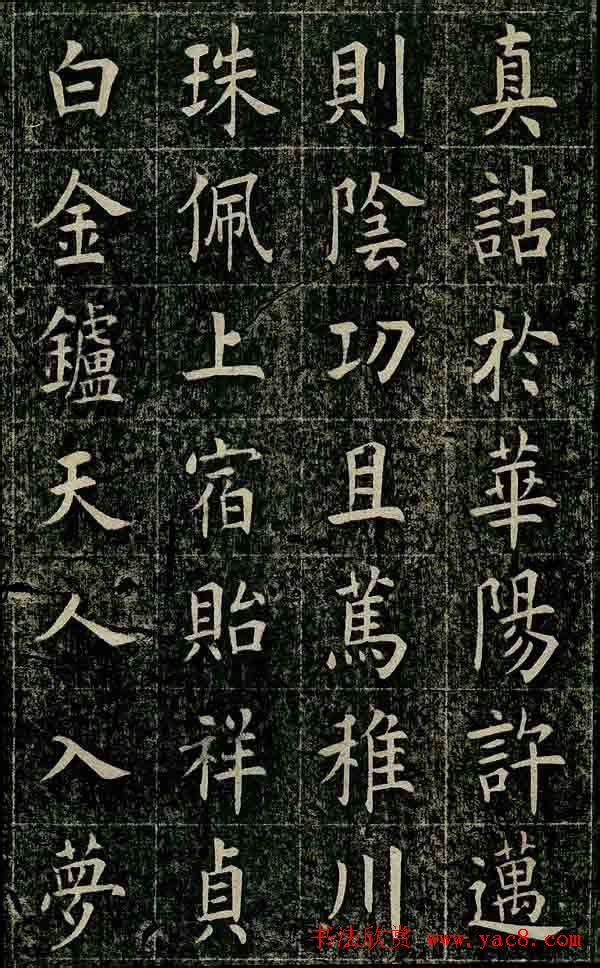 真誥於華陽許邁
則陰功且篤稚川
珠佩上宿貽祥貞
白金鑪天人入夢
书法欣赏 www.yac8.com